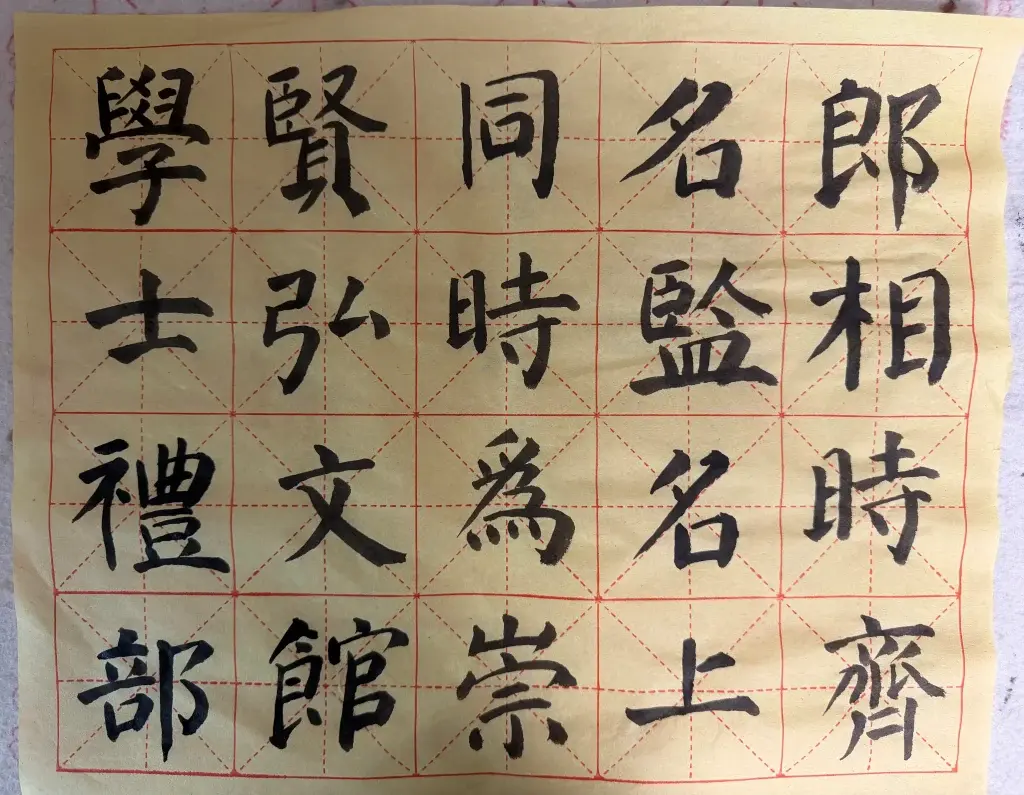 郎相時齊
名監名上
同時爲崇
賢弘文館
學士禮部